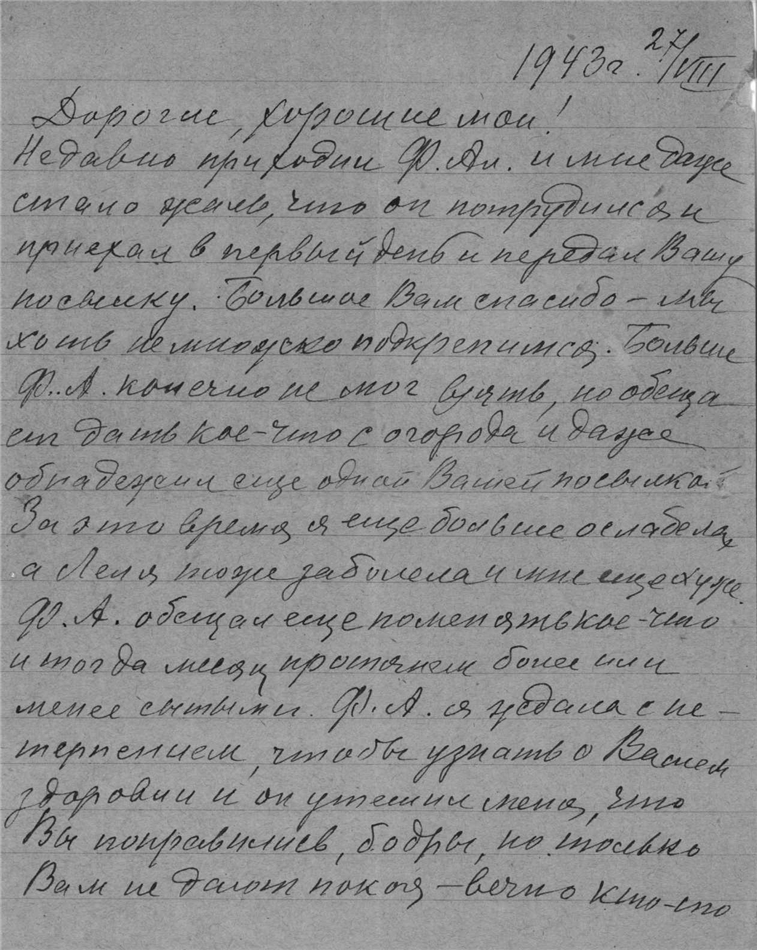 1943г. 27/VIII
Дорогие, хорошие мои!
Недавно приходил Ф. Ал. и мне даже
стало жаль, что он потрудился и
приехал в первый день и передал Вашу
посылку. Большое Вам спасибо – мы
хоть немножко подкрепимся. Больше
Ф. А. конечно не мог взять, но обеща
ет дать кое-что с огорода и даже
обнадежил еще одной Вашей посылкой
За это время я еще больше ослабела,
а Леля тоже заболела и мне еще хуже.
Ф. А. обещал еще поменять кое-что
и тогда месяц протянем более или
менее сытыми. Ф. А. я ждала с не-
терпением, чтобы узнать о Вашем
здоровии и он утешил меня, что
Вы поправились, бодры, но только
Вам не дают покоя – вечно кто-то